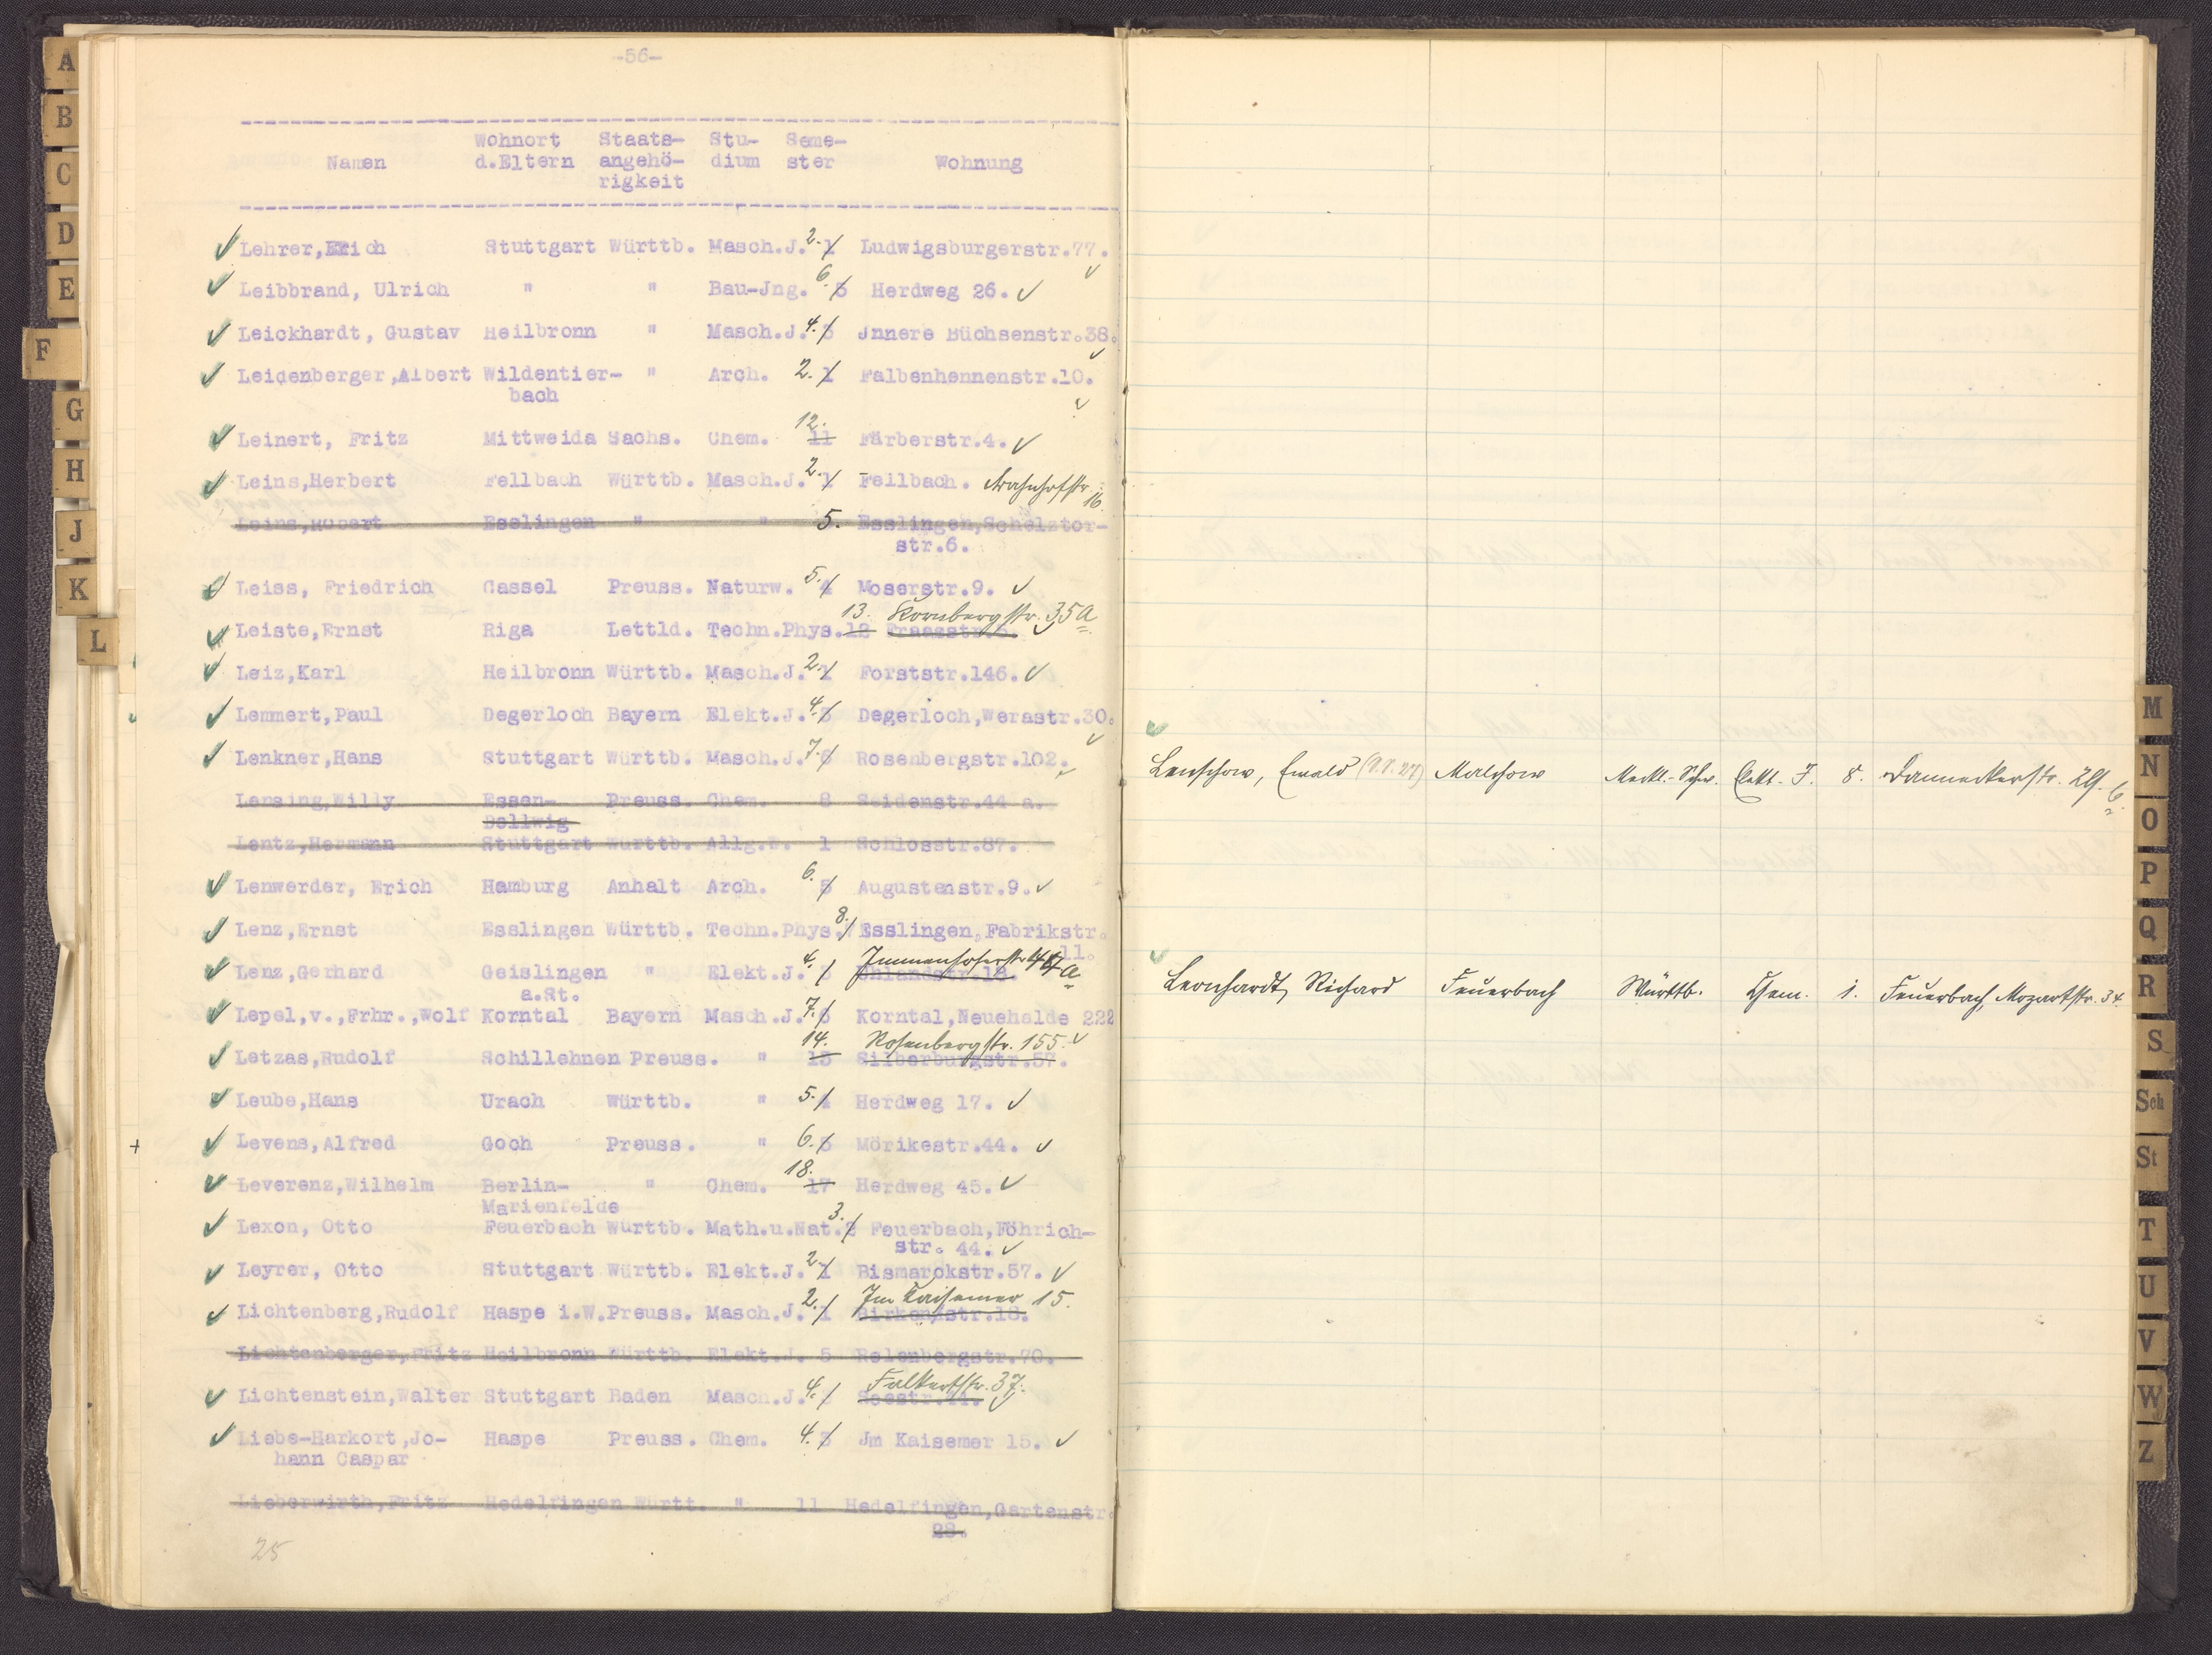 -56-
Namen Wohnort d.Eltern Staats-angehö-rigkeit Stu-dium Seme-ster Wohnung
Lehrer,Erich Stuttgart Württb. Masch.J. 2. 1 Ludwigsburgerstr.77.
Leibbrand, Ulrich " " Bau-Jng. 6. 5 Herdweg 26.
Leickhardt, Gustav Heilbronn " Masch.J. 4. 3 Jnnere Büchsenstr.38.
Leidenberger,Albert Wildentier- " Arch. 2. 1 Falbenhennenstr.10.
bach
12.
Leinert, Fritz Mittweida Sachs. Chem. 11 Färberstr.4.
Leins,Herbert Fellbach Württb. Masch.J. 2. 1 Fellbach. Bahnhofstr. 16.
Leins,Robert Esslingen " " 5. Esslingen,Schelztor-
str.6.
Leiss, Friedrich Cassel Preuss. Naturw. 5. 4 Moserstr.9.
13. Kornbergstr. 35a
Leiste,Ernst Riga Lettld. Techn.Phys.12 Fraasstr.
Leiz,Karl Heilbronn Württb. Masch.J. 2. 1 Forststr.146.
Lemmert,Paul Degerloch Bayern Elekt.J. 4. 3 Degerloch,Werastr.30.
Lenkner,Hans Stuttgart Württb. Masch.J. 7. 6 Rosenbergstr.102.
Lensing,Willy Essen- Preuss. Chem. 8 Seidenstr.44 a.
Dellwig
Lentz,Hermann Stuttgart Württb. Allg.W. 1 Schlosstr.87.
Lenwerder, Erich Hamburg Anhalt Arch. 6. 5 Augustenstr.9.
Lenz,Ernst Esslingen Württb. Techn.Phys. 8. Esslingen,Fabrikstr.
11.
Immenhoferstr.
Lenz,Gerhard Geislingen " Elekt.J. 4. 3 Uhlandstr.18.
a.St.
Lepel,v.,Frhr.,Wolf Korntal Bayern Masch.J. 7. 6 Korntal,Neuehalde 222
14. Rosenbergstr. 155.
Letzas,Rudolf Schillehnen Preuss. " 13 Silberburgstr.57.
Leube,Hans Urach Württb. " 5. 4 Herdweg 17.
+ Levens,Alfred Goch Preuss. " 6. 5 Mörikestr.44.
18.
Leverenz,Wilhelm Berlin- " Chem. 17 Herdweg 45.
Marienfelde
Lexon, Otto Feuerbach Württb. Math.u.Nat. 3. 2 Feuerbach,Föhrich-
str. 44.
Leyrer, Otto Stuttgart Württb. Elekt.J. 2. 1 Bismarckstr.57.
Im Kaisemer 15.
Lichtenberg,Rudolf Haspe i.W.Preuss. Masch.J. 2. 1 Birkendstr.18.
Lichtenberger,Fritz Heilbronn Württb. Elekt.J. 5 Relenbergstr.70.
Falkertstr. 37.
Lichtenstein,Walter Stuttgart Baden Masch.J. 4. Seestr.
Liebe-Harkort,Jo- Haspe Preuss. Chem. 4. 3 Jm Kaisemer 15.
hann Caspar
Lieberwirth,Fritz Hedelfingen Württ. " 11 Hedelfingen,Gartenstr.
28.
25
Lenschow, Ewald Malchow Meckl.-Schw. Elekt. J. 8. Danneckerstr.
Leonhardt, Richard Feuerbach Württb. Chem. 1. Feuerbach, Mozartstr. 34
A
B
C
D
E
F
G
H
J
K
L
M
N
O
P
Q
R
S
Sch
St
T
U
V
W
Z